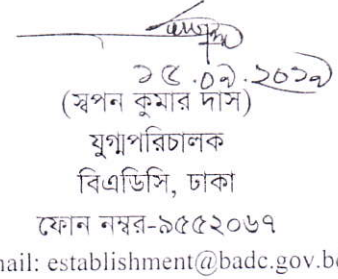 (স্বপন কুমার দাস)
যুগ্মপরিচালক
বিএডিসি, ঢাকা
ফোন নম্বর-৯৫৫২০৬৭
mail: establishment@badc.gov.b